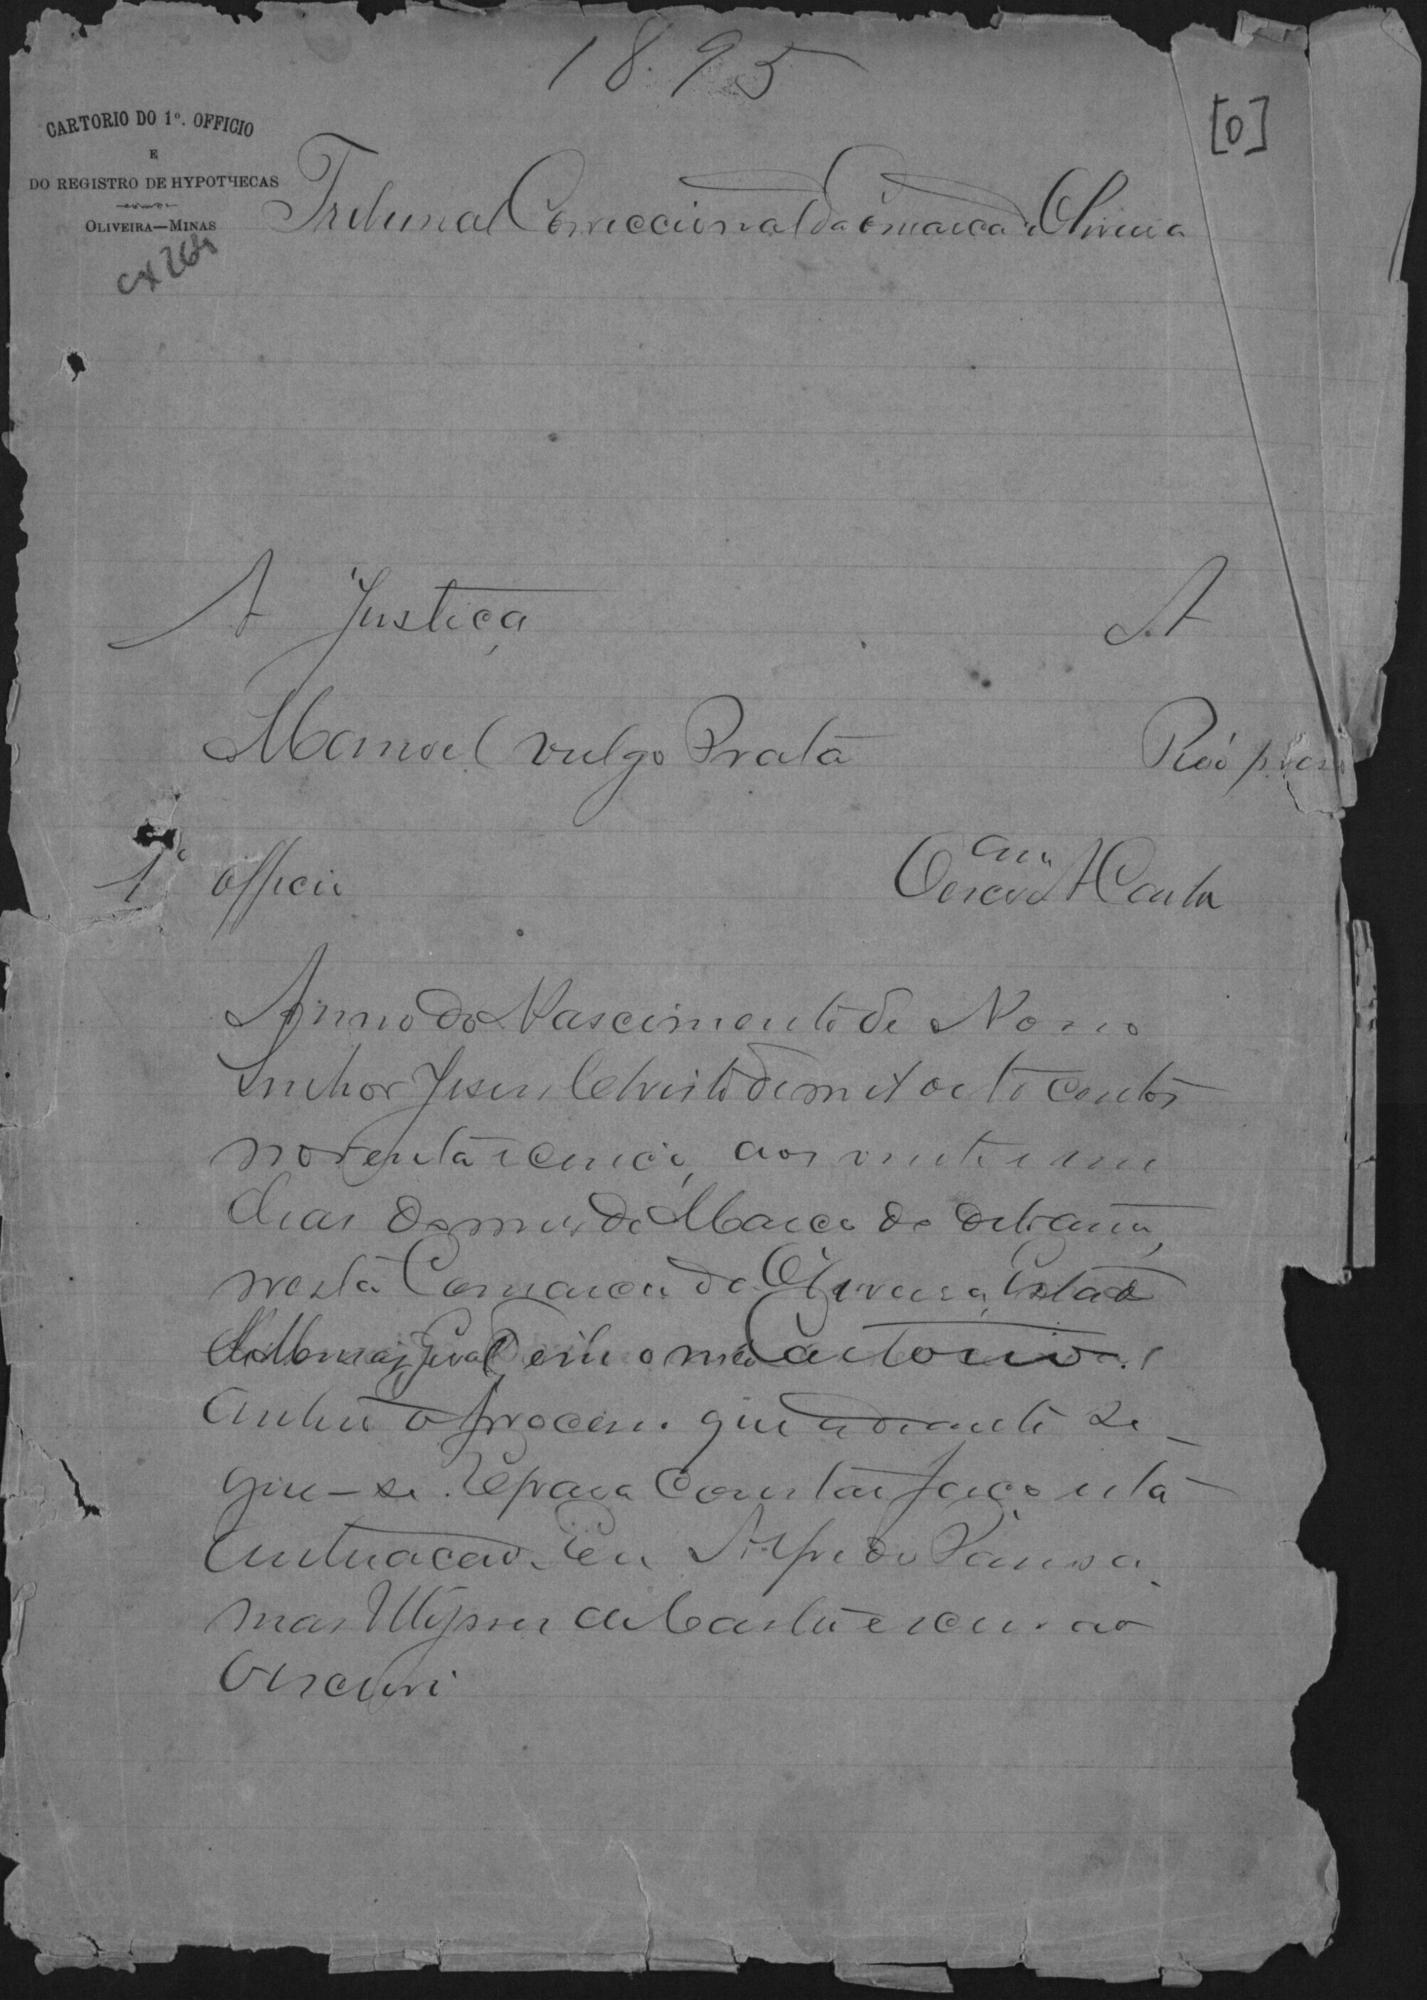 18.95
[0]
CARTORIO DO 1º. OFFICIO
E
DO REGISTRO DE HYPOTHECAS
OLIVEIRA—MINAS
cx 264
Tribunal Correccional da Comarca de Oliveira
A Justiça A
Manoel vulgo Prata Réo preso
1º officio
Escrivam
Anno do Nascimento de Nosso
Senhor Jesus Christo de mil oito centos
noventa e cinco, aos vinte e um
dias do mes de Março do dito anno,
nesta Comarca de Oliveira, Estado
de Minas Geraes em o meu Cartorio
autuo o processo que adiante se
gue-se. E para constar faço esta
autuação. Eu Alfredo
Ulysses de Castro escrivão
escrevi